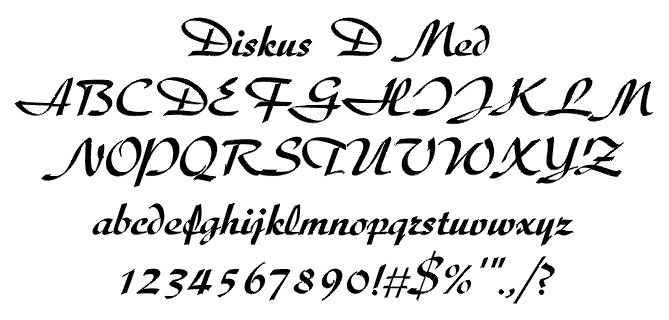 Diskus D Med
ABCDEFGHIJKLM
NOPQRSTUVWXYZ
abcdefghijklmnopqrstuvwxyz
1234567890!#$%'".,/?